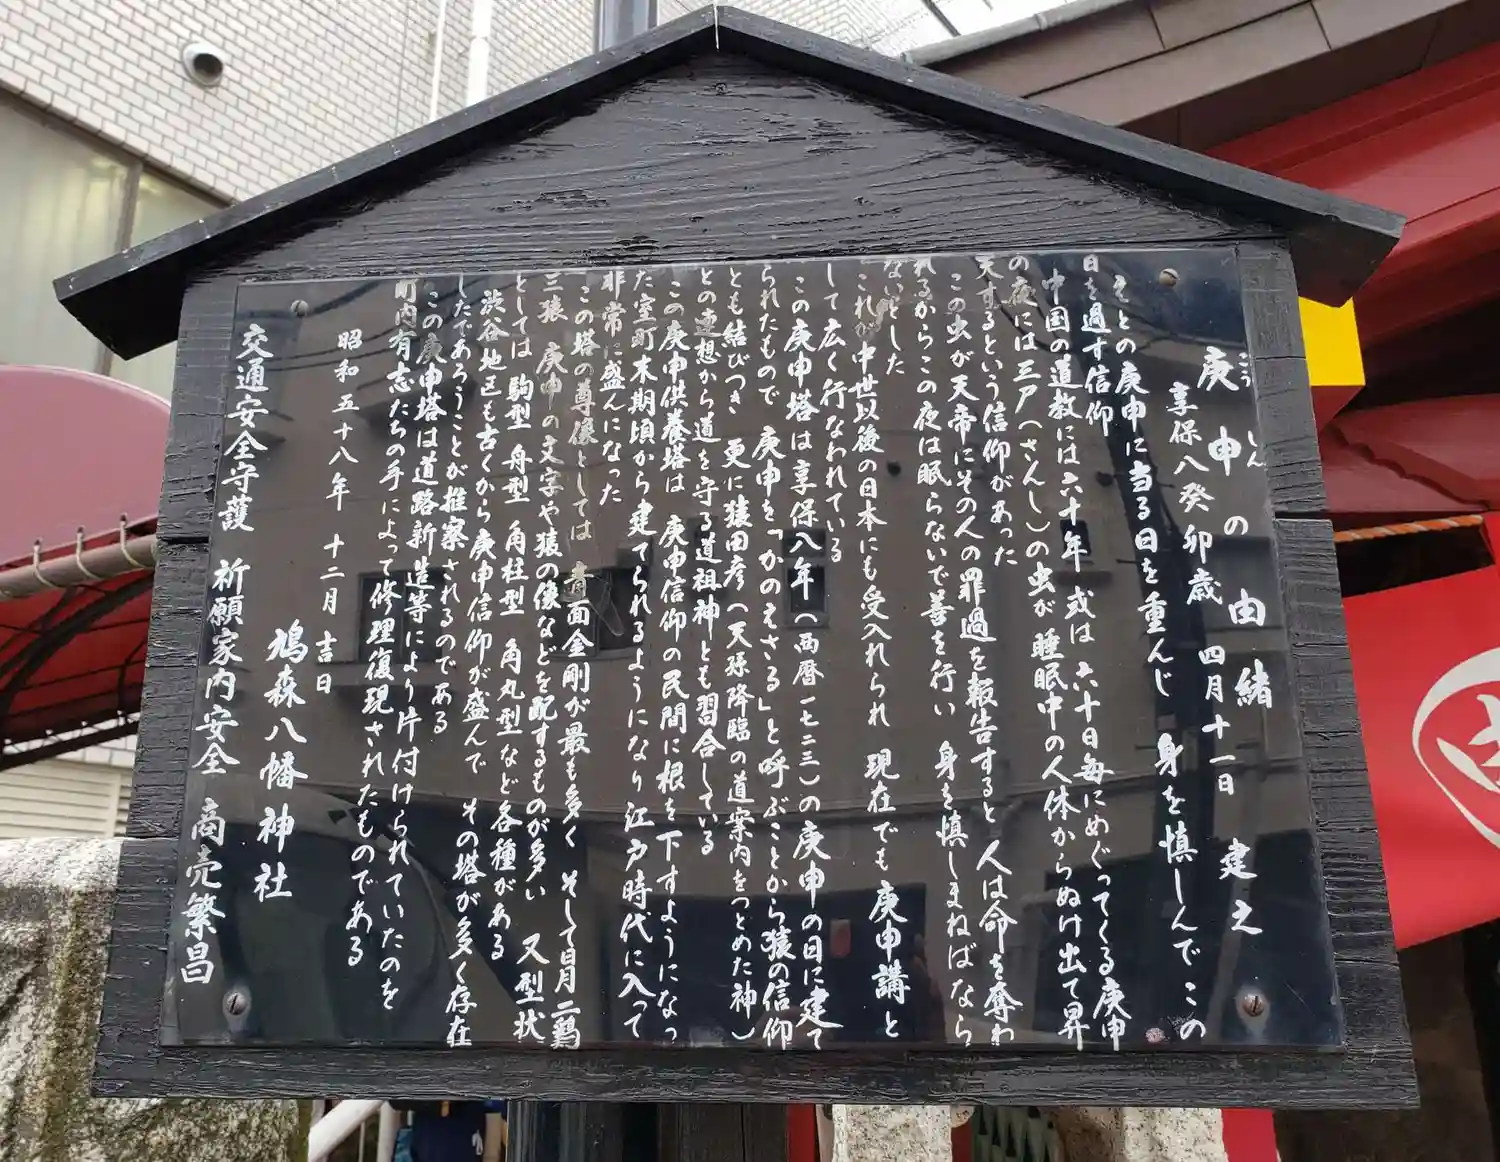 庚申の由緒
こうしん
享保八癸卯歳 四月十一日 建之
もとの庚申に当る日を重んじ 身を慎しんで この
日を過す信仰
中国の道教には六十年 或は 六十日毎にめぐってくる庚申
の夜には三尸(さんし)の虫が睡眠中の人体からぬけ出て昇
天するという信仰があった
この虫が天帝にその人の罪過を報告すると 人は命を奪わ
れるからこの夜は眠らないで善を行い 身を慎しまねばなら
ないとした
これが中世以後の日本にも受入れられ 現在でも庚申講と
して広く行なわれている
この庚申塔は享保八年(西暦一七二三)の庚申の日に建て
られたもので 庚申を「かのえさる」と呼ぶことから猿の信仰
とも結びつき 更に猿田彦(天孫降臨の道案内をつとめた神)
との連想から道を守る道祖神とも習合している
この庚申供養塔は 庚申信仰の民間に根を下すようになっ
た室町末期頃から建てられるようになり江戸時代に入って
非常に盛んになった
この塔の尊像としては 青面金剛が最も多く そして日月二鶏
三猿 庚申の文字や猿の像などを配するものが多い 又型状
としては 駒型 舟型 角柱型 角丸型など各種がある
渋谷地区も古くから庚申信仰が盛んで その塔が多く存在
したであろうことが推察されるのである
この庚申塔は道路新造等により片付けられていたのを
町内有志たちの手によって修理復現されたものである
昭和五十八年 十二月 吉日
鳩森八幡神社
交通安全守護 祈願家内安全 商売繁昌